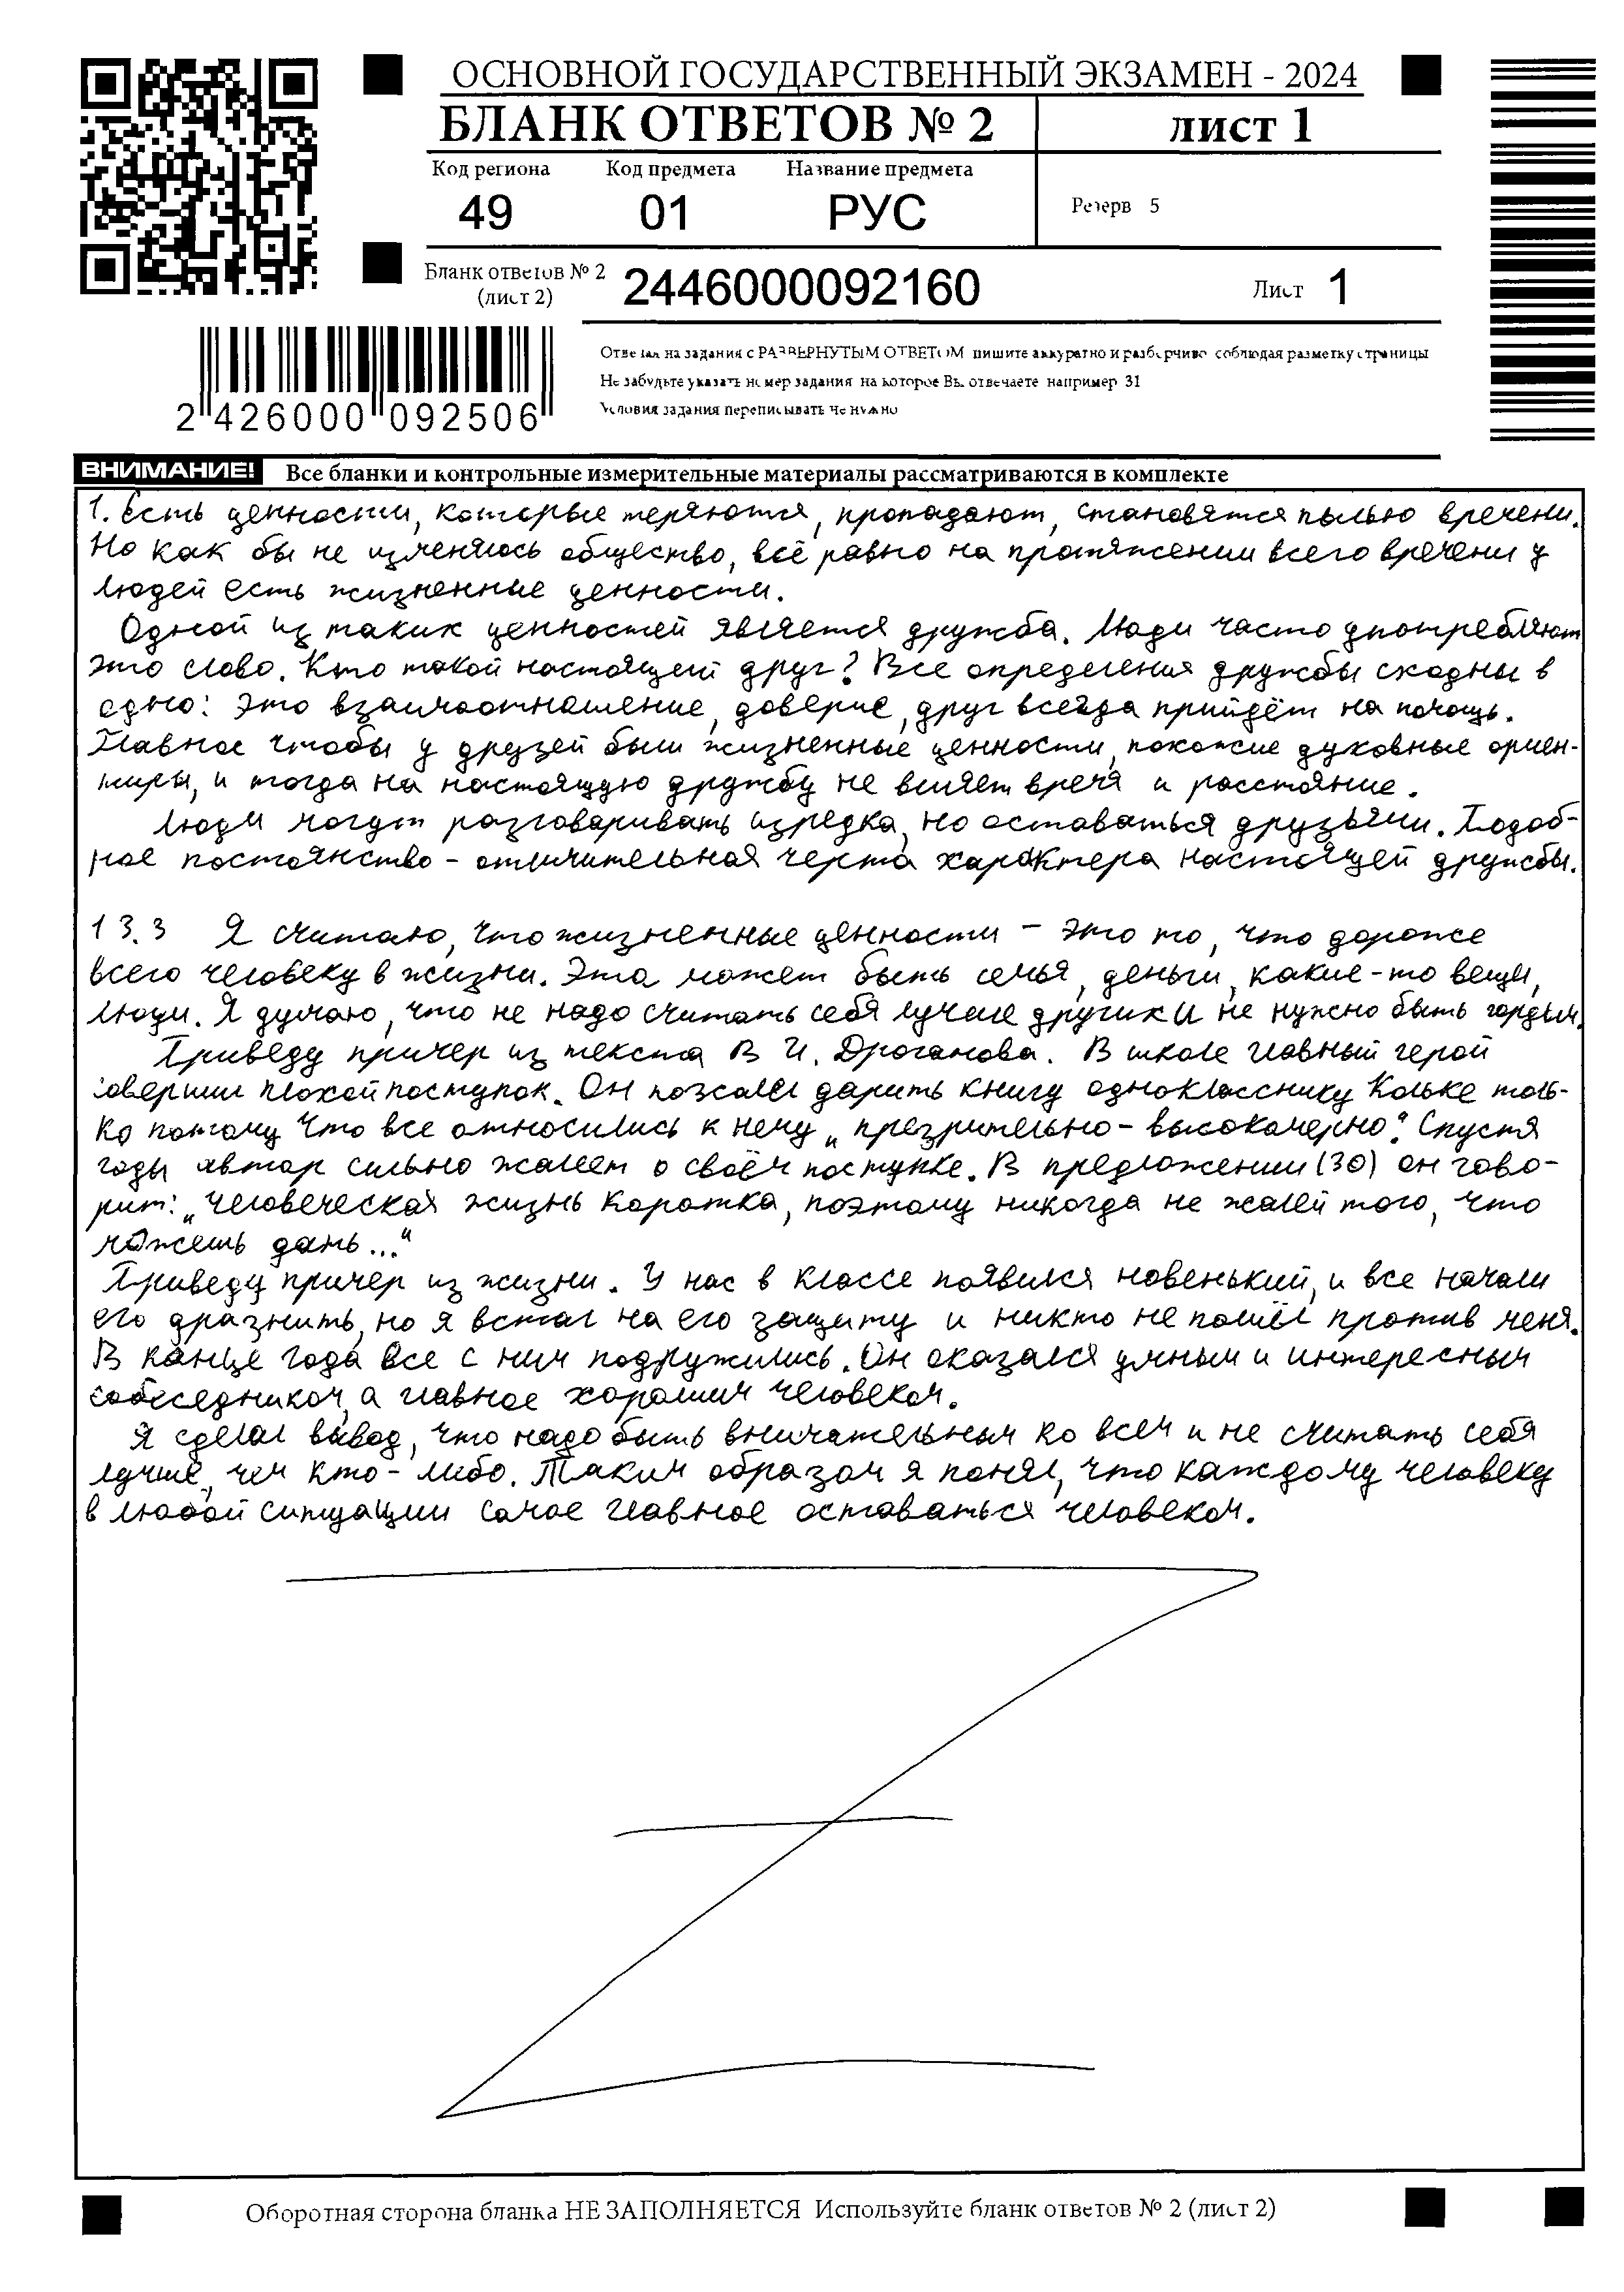 ОСНОВНОЙ ГОСУДАРСТВЕННЫЙ ЭКЗАМЕН - 2024
БЛАНК ОТВЕТОВ № 2
лист 1
Код региона
Код предмета
Название предмета
49
01
РУС
Резерв 5
Бланк ответов № 2
(лист 2)
2446000092160
Лист 1
Ответы на задания с РАЗВЕРНУТЫМ ОТВЕТОМ пишите аккуратно и разборчиво соблюдая разметку страницы
Не забудьте указать номер задания на которое Вы отвечаете например 31
Условия задания переписывать не нужно
2 426000 092506
ВНИМАНИЕ! Все бланки и контрольные измерительные материалы рассматриваются в комплекте
1. Есть ценности, которые теряются, пропадают, становятся пылью времени.
Но как бы не изменялось общество, всё равно на протяжении всего времени у
людей есть жизненные ценности.
Одной из таких ценностей является дружба. Люди часто употребляют
это слово. Кто такой настоящей друг? Все определения дружбы сходны в
одно: это взаимоотношение, доверие, друг всегда прийдёт на помощь.
Главное чтобы у друзей были жизненные ценности, похожие духовные ориен-
тиры, и тогда на настоящую дружбу не влияет время и расстояние.
Люди могут разговаривать изредка, но оставаться друзьями. Подоб-
ное постоянство - отличительная черта характера настоящей дружбы.
13.3 Я считаю, что жизненные ценности - это то, что дороже
всего человеку в жизни. Эта может быть семья, деньги, какие-то вещи,
люди. Я думаю, что не надо считать себя лучше других и не нужно быть гордым.
Приведу пример из текста В. И. Дроганова. В школе главный герой
совершил плохой поступок. Он пожалел дарить книгу однокласснику Кольке толь-
ко потому что все относились к нему „презрительно-высокомерно". Спустя
годы автор сильно жалеет о своём поступке. В предложении (30) он гово-
рит: „Человеческая жизнь коротка, поэтому никогда не жалей того, что
можешь дать..."
Приведу пример из жизни. У нас в классе появился новенький, и все начали
его дразнить, но я встал на его защиту и никто не пошёл против меня.
В канце года все с ним подружились. Он оказался умным и интересным
собеседником, а главное хорошим человеком.
Я сделал вывод, что надо быть внимательным ко всем и не считать себя
лучше, чем кто-либо. Таким образом я понял, что каждому человеку
в любой ситуации самое главное оставаться человеком.
Оборотная сторона бланка НЕ ЗАПОЛНЯЕТСЯ Используйте бланк ответов № 2 (лист 2)